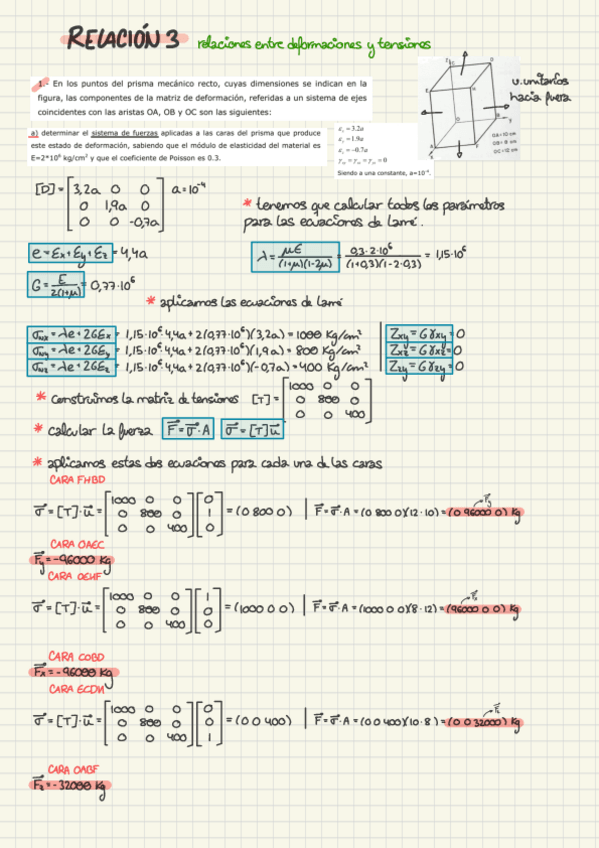 RELACIÓN 3 relaciones entre deformaciones y tensiones
1.- En los puntos del prisma mecánico recto, cuyas dimensiones se indican en la
figura, las componentes de la matriz de deformación, referidas a un sistema de ejes
coincidentes con las aristas OA, OB y OC son las siguientes:
u.unitarios
hacia fuera
OA=10 cm
OB=8 cm
OC=12 cm
a) determinar el sistema de fuerzas aplicadas a las caras del prisma que produce
este estado de deformación, sabiendo que el módulo de elasticidad del material es
E=2*10⁶ kg/cm² y que el coeficiente de Poisson es 0.3.
εx = 3.2a
εy = 1.9a
εz = -0.7a
γxy = γxz = γyz = 0
Siendo a una constante, a=10⁻⁴.
[D] = [3,2a 0 0 a=10⁻⁴
0 1,9a 0
0 0 -0,7a]
* tenemos que calcular todos los parámetros
para las ecuaciones de lamé.
e = εx + εy + εz = 4,4a
λ = μE/(1+μ)(1-2μ) = 0,3·2·10⁶/(1+0,3)(1-2·0,3) = 1,15·10⁶
G = E/2(1+μ) = 0,77·10⁶
* aplicamos las ecuaciones de lamé
σnx = λe + 2Gεx = 1,15·10⁶·4,4a + 2(0,77·10⁶)(3,2a) = 1000 Kg/cm² | Zxy = Gγxy = 0
σny = λe + 2Gεy = 1,15·10⁶·4,4a + 2(0,77·10⁶)(1,9a) = 800 Kg/cm² | Zxz = Gγxz = 0
σnz = λe + 2Gεz = 1,15·10⁶·4,4a + 2(0,77·10⁶)(-0,7a) = 400 Kg/cm² | Zzy = Gγzy = 0
* construimos la matriz de tensiones [T] = [1000 0 0
0 800 0
0 0 400]
* calcular la fuerza F = σ·A σ = [T]·u
* aplicamos estas dos ecuaciones para cada una de las caras
CARA FHBD
σ = [T]·u = [1000 0 0; 0 800 0; 0 0 400][0; 1; 0] = (0 800 0) | F = σ·A = (0 800 0)(12·10) = (0 96000 0) Kg
CARA OAEC
Fy = -96000 Kg
CARA OEHF
σ = [T]·u = [1000 0 0; 0 800 0; 0 0 400][1; 0; 0] = (1000 0 0) | F = σ·A = (1000 0 0)(8·12) = (96000 0 0) Kg
CARA COBD
Fx = -96000 Kg
CARA ECDH
σ = [T]·u = [1000 0 0; 0 800 0; 0 0 400][0; 0; 1] = (0 0 400) | F = σ·A = (0 0 400)(10·8) = (0 0 32000) Kg
CARA OABF
Fz = -32000 Kg